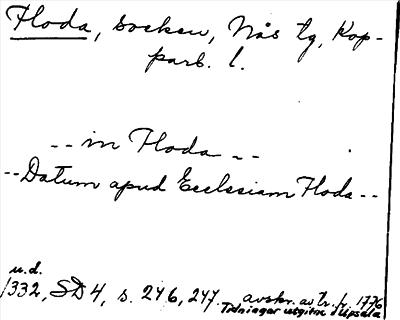 Floda, socken, Nås tg, Kop-
parb. l.
-- in Floda --
-- Datum apud Ecclesiam Floda --
u.d.
1332, SD 4, s. 246, 247. avskr. av tr. fr. 1776
Tidningar utgifne i Upsala